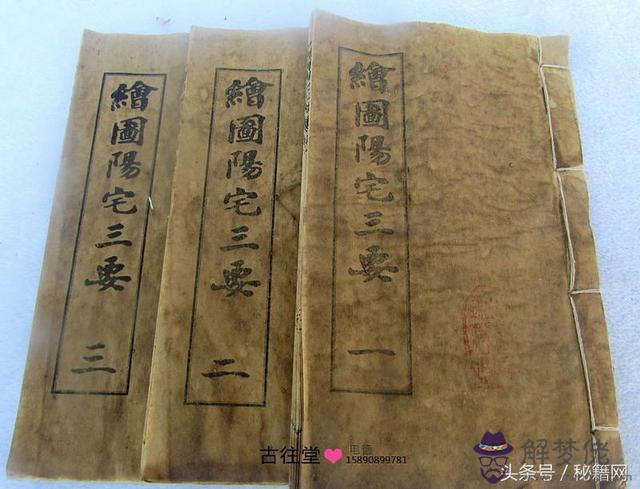 繪圖陽宅三要 一
繪圖陽宅三要 二
繪圖陽宅三要 三
古往堂❤电话
15890899781
解梦佬
头条号／秘籍网